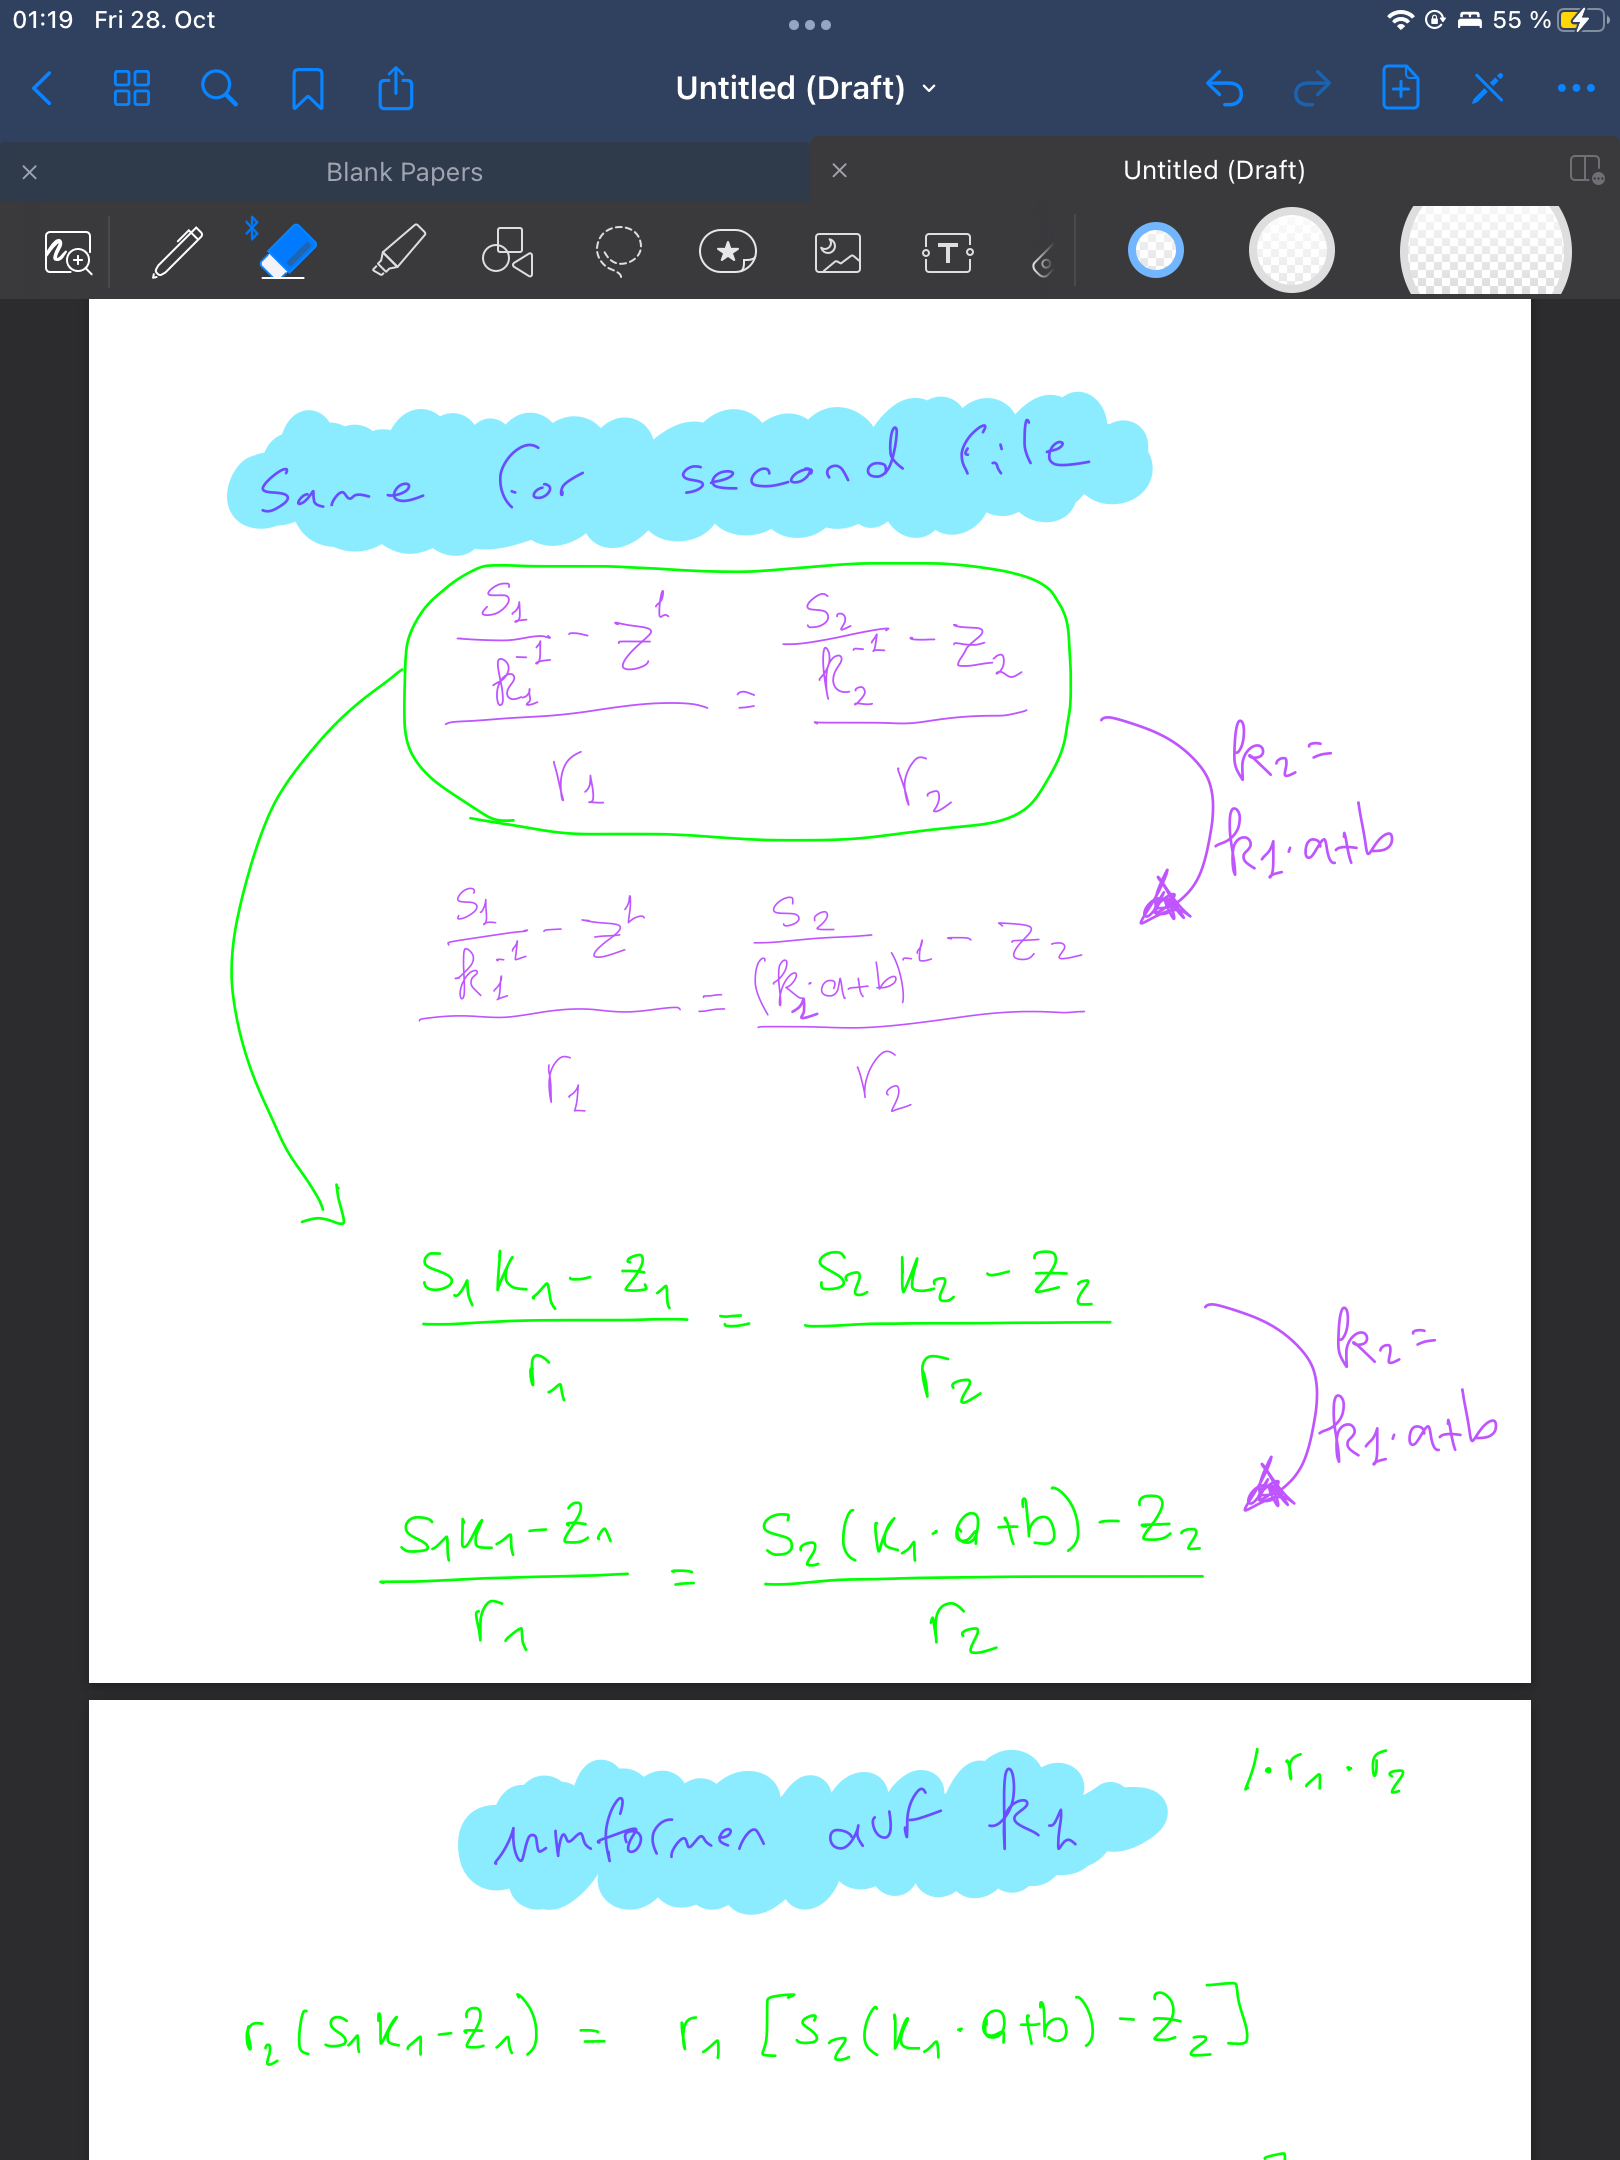 01:19 Fri 28. Oct 55 %
Untitled (Draft)
Blank Papers Untitled (Draft)
T
Same for second file
(s₁/k₁⁻¹ - z¹)/r₁ = (s₂/k₂⁻¹ - z₂)/r₂
k₂ =
k₁·a+b
(s₁/k₁⁻¹ - z¹)/r₁ = (s₂/(k₁·a+b)⁻¹ - z₂)/r₂
(s₁k₁ - z₁)/r₁ = (s₂k₂ - z₂)/r₂
k₂ =
k₁·a+b
(s₁k₁ - z₁)/r₁ = (s₂(k₁·a+b) - z₂)/r₂
/·r₁·r₂
umformen auf k₁
r₂(s₁k₁-z₁) = r₁[s₂(k₁·a+b)-z₂]